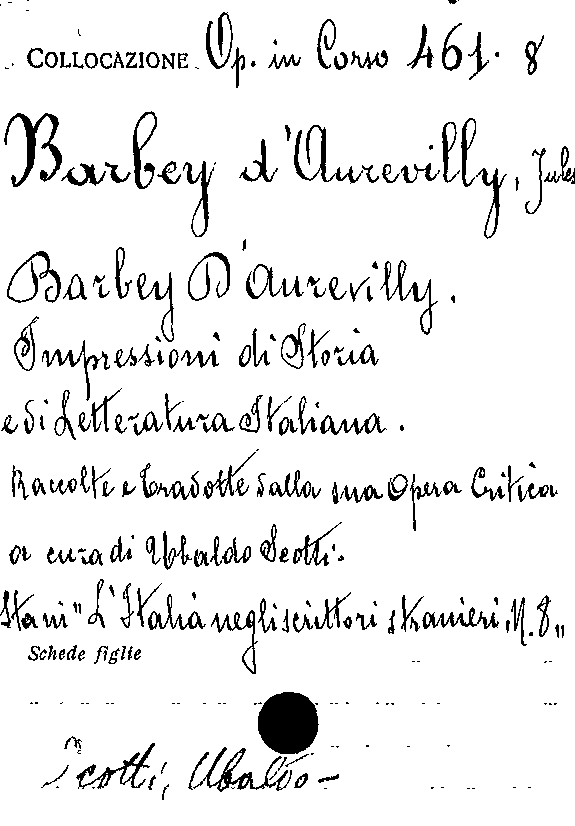 COLLOCAZIONE Op. in Corso 461. 8
Barbey d'Aurevilly, Jules
Barbey D'Aurevilly.
Impressioni di Storia
e di Letteratura Italiana.
Raccolte e tradotte dalla sua Opera Critica
a cura di Ubaldo Scotti.
"L'Italia negli scrittori stranieri, N. 8"
Schede figlie
Scotti, Ubaldo -